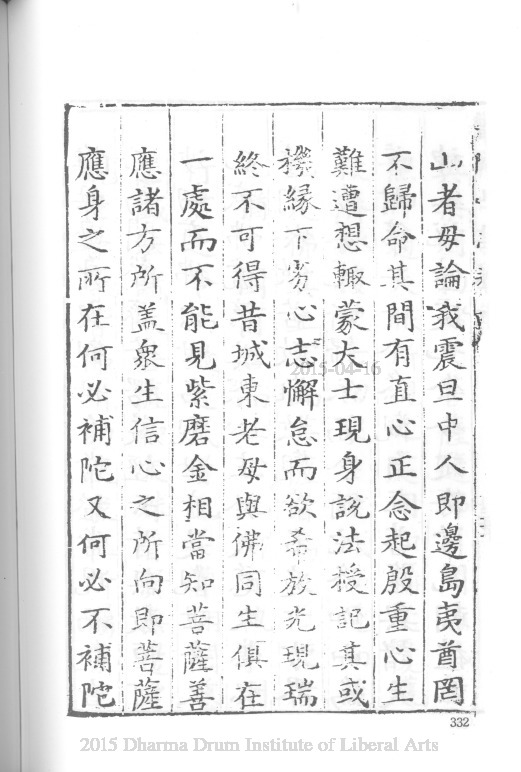 山者毋論我震旦中人即邊島夷酋罔
不歸命其間有直心正念起殷重心生
難遭想輙蒙大士現身說法授記其或
機緣下劣心志懈怠而欲希放光現瑞
終不可得昔城東老母與佛同生俱在
一處而不能見紫磨金相當知菩薩善
應諸方所盖衆生信心之所向即菩薩
應身之所在何必補陀又何必不補陀
332
2015-04-16
2015 Dharma Drum Institute of Liberal Arts